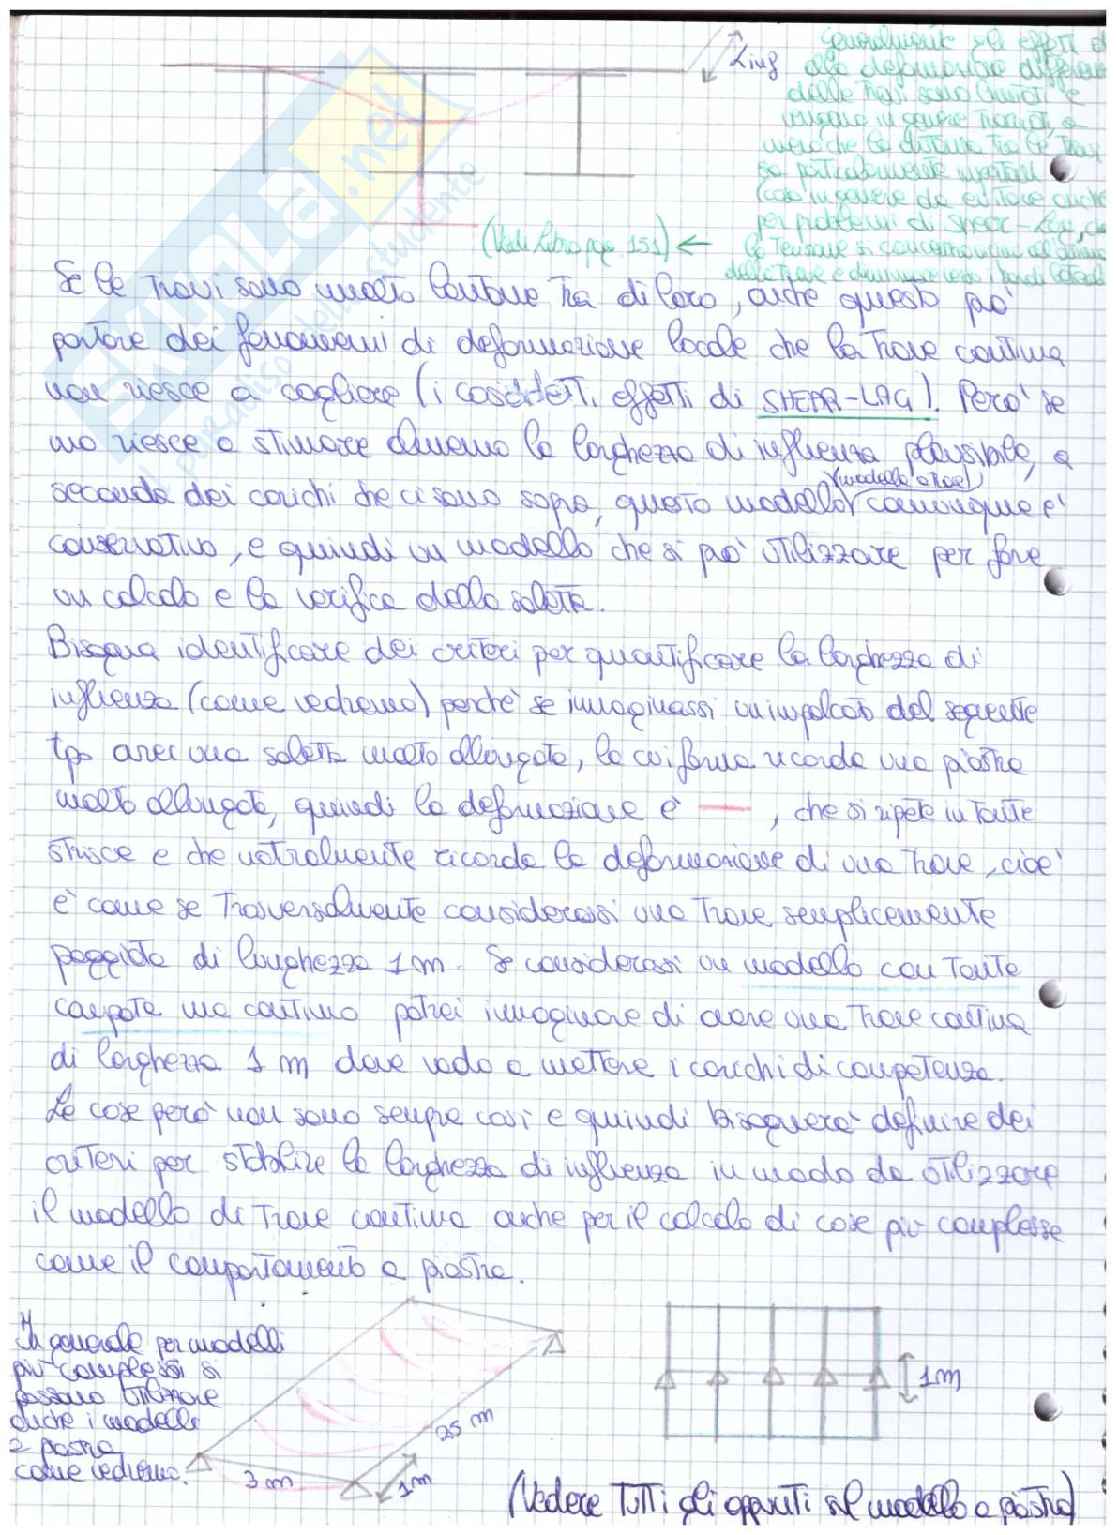 Linf
Generalmente gli effetti
alle deformazioni differen
delle travi sono limitati e
in genere
meno che la distanza tra le travi
sia particolarmente
caso in genere da evitare anche
per problemi di Shear-Lag,
(Vedi Libro pag. 151) ← le tensioni si concentrano
della trave e diminuiscono verso i bordi
Se le travi sono molto lontane tra di loro, anche questo può
portare dei fenomeni di deformazione locale che la trave continua
non riesce a cogliere (i cosiddetti effetti di SHEAR-LAG). Però se
uno riesce a stimare almeno la larghezza di influenza plausibile, a
(modello a trave)
seconda dei carichi che ci sono sopra, questo modello comunque è
conservativo, e quindi un modello che si può utilizzare per fare
un calcolo e la verifica della soletta.
Bisogna identificare dei criteri per quantificare la larghezza di
influenza (come vedremo) perchè se immaginassi un impalcato del seguente
tipo avrei una soletta molto allungata, la cui forma ricorda una piastra
molto allungata, quindi la deformazione è , che si ripete in tante
strisce e che naturalmente ricorda la deformazione di una trave, cioè
è come se trasversalmente considerassi una trave semplicemente
poggiata di lunghezza 1 m. Se considerassi un modello con tante
campate ma continuo potrei immaginare di avere una trave continua
di larghezza 1 m dove vado a mettere i carichi di competenza.
Le cose però non sono sempre così e quindi bisognerà definire dei
criteri per stabilire la larghezza di influenza in modo da utilizzare
il modello di trave continua anche per il calcolo di cose più complesse
come il comportamento a piastra.
In generale per modelli
più complessi si
possono utilizzare
anche i modelli
a piastra
come vedremo.
3 m
25 m
1m
1m
(Vedere TUTTI gli appunti sul modello a piastra)